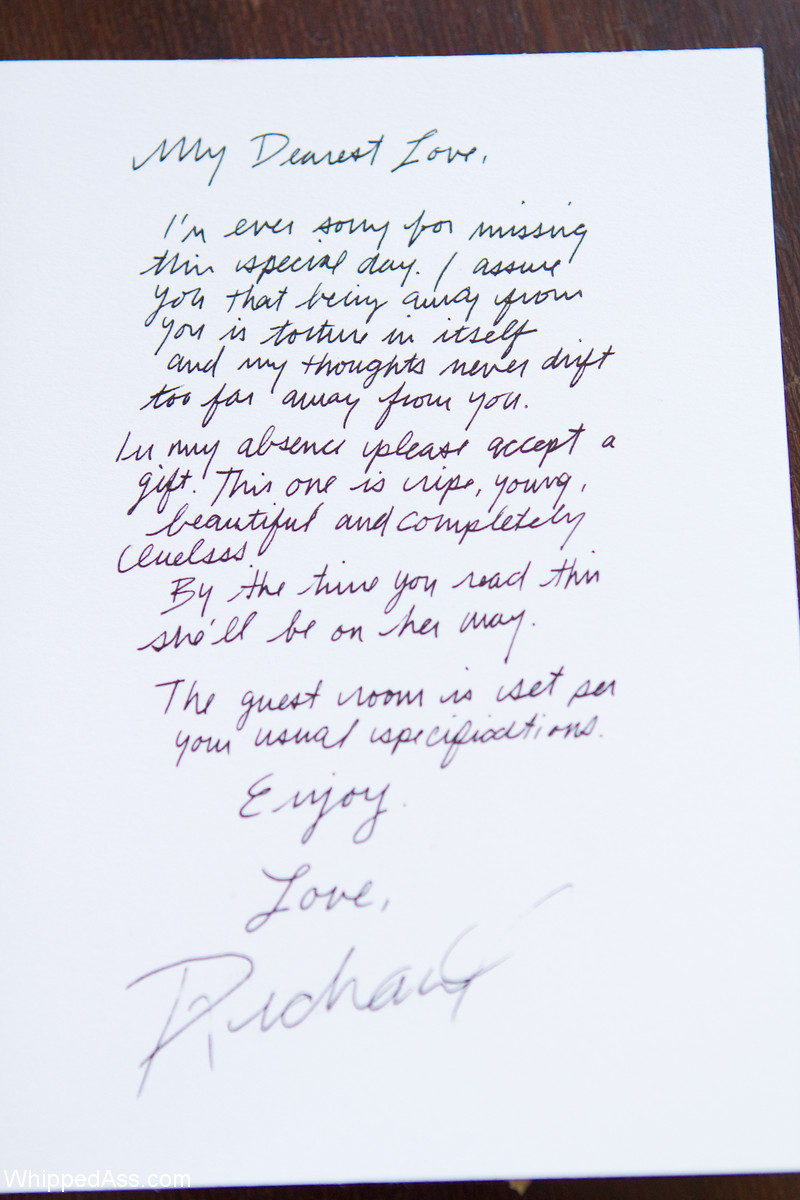 My Dearest Love,
I'm ever sorry for missing
this special day. I assure
you that being away from
you is torture in itself
and my thoughts never drift
too far away from you.
In my absence please accept a
gift. This one is ripe, young,
beautiful and completely
cluelsss.
By the time you read this
she'll be on her way.
The guest room is set per
your usual specifications.
Enjoy.
Love,
Richard
WhippedAss.com